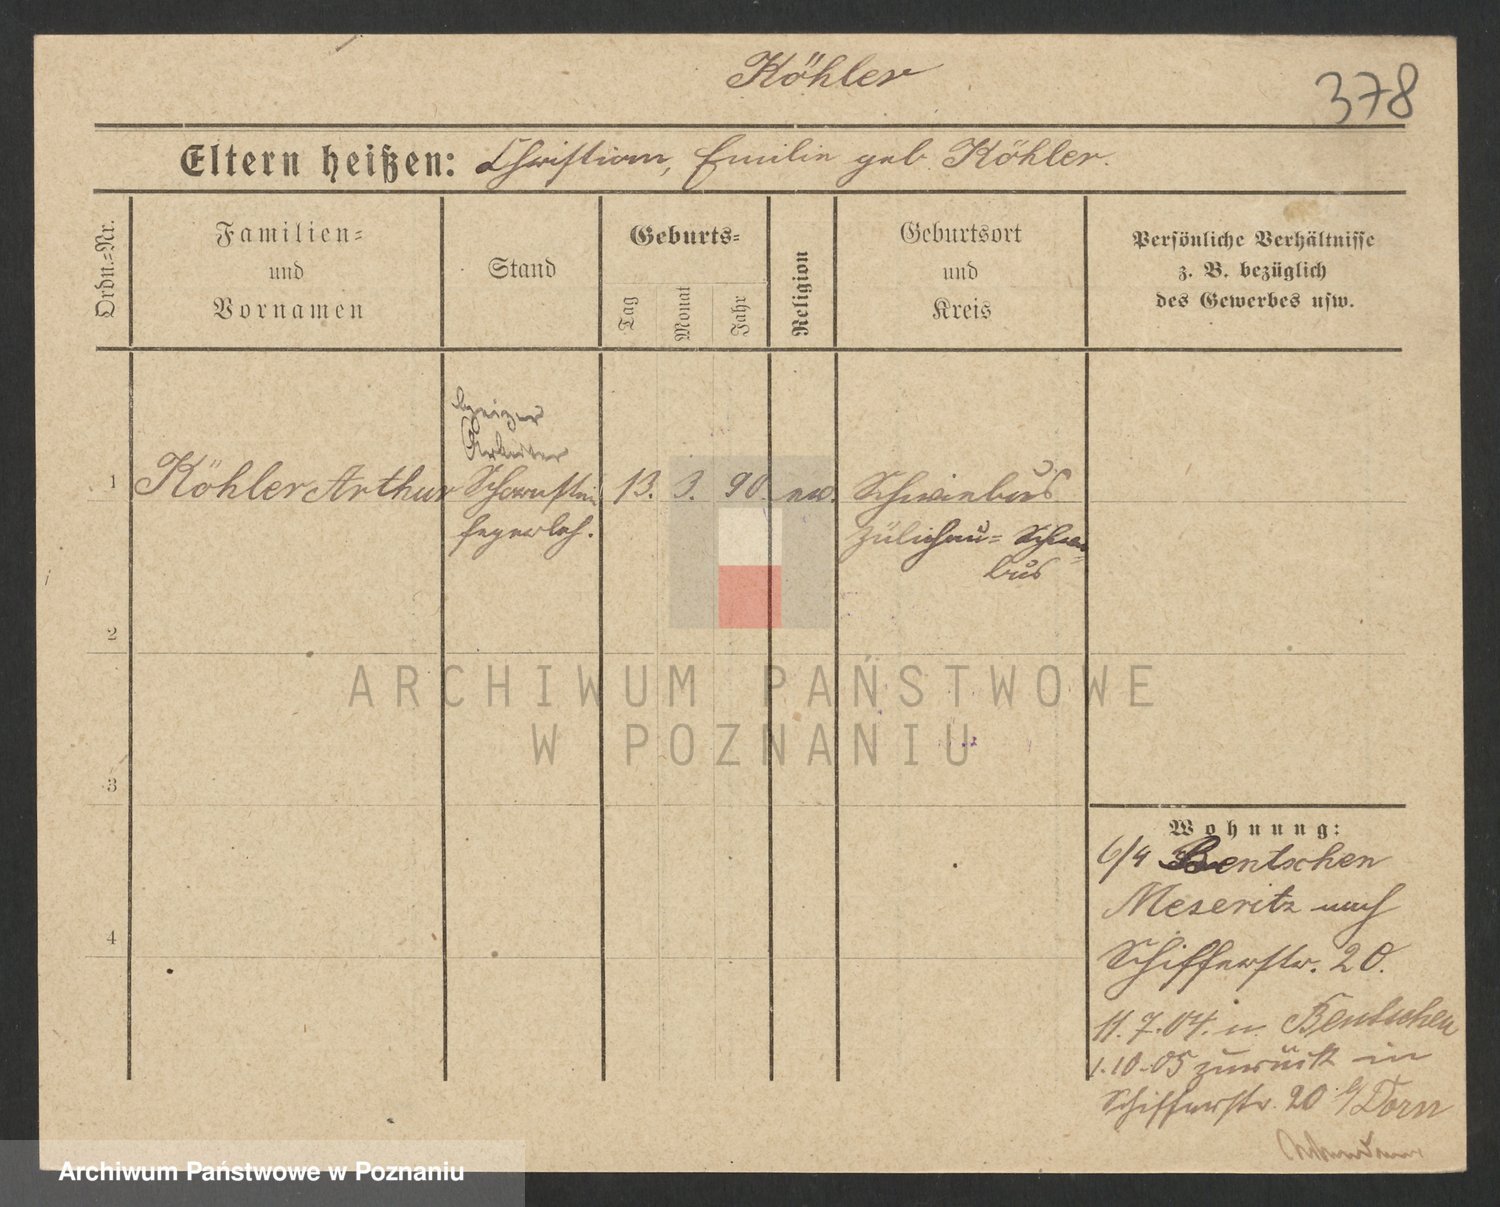 Köhler
378
Eltern heißen: Christian, Emilie geb Köhler.
Ordn.=Nr.
Familien=
und
Vornamen
Stand
Geburts=
Tag
Monat
Jahr
Religion
Geburtsort
und
Kreis
Persönliche Verhältnisse
z. B. bezüglich
des Gewerbes usw.
heizer
Arbeiter
1 Köhler Arthur Schornstein 13. 3. 90. ev. Schwiebus
fegerleh. Züllichau= Schwie=
bus
2
3
4
Wohnung:
6/4 Bentschen
Meseritz nach
Schifferstr. 20.
11.7.04. n. Bentschen
1.10.05 zurück in
Schifferstr. 20 b/Dorn
ARCHIWUM PAŃSTWOWE
W POZNANIU
Archiwum Państwowe w Poznaniu